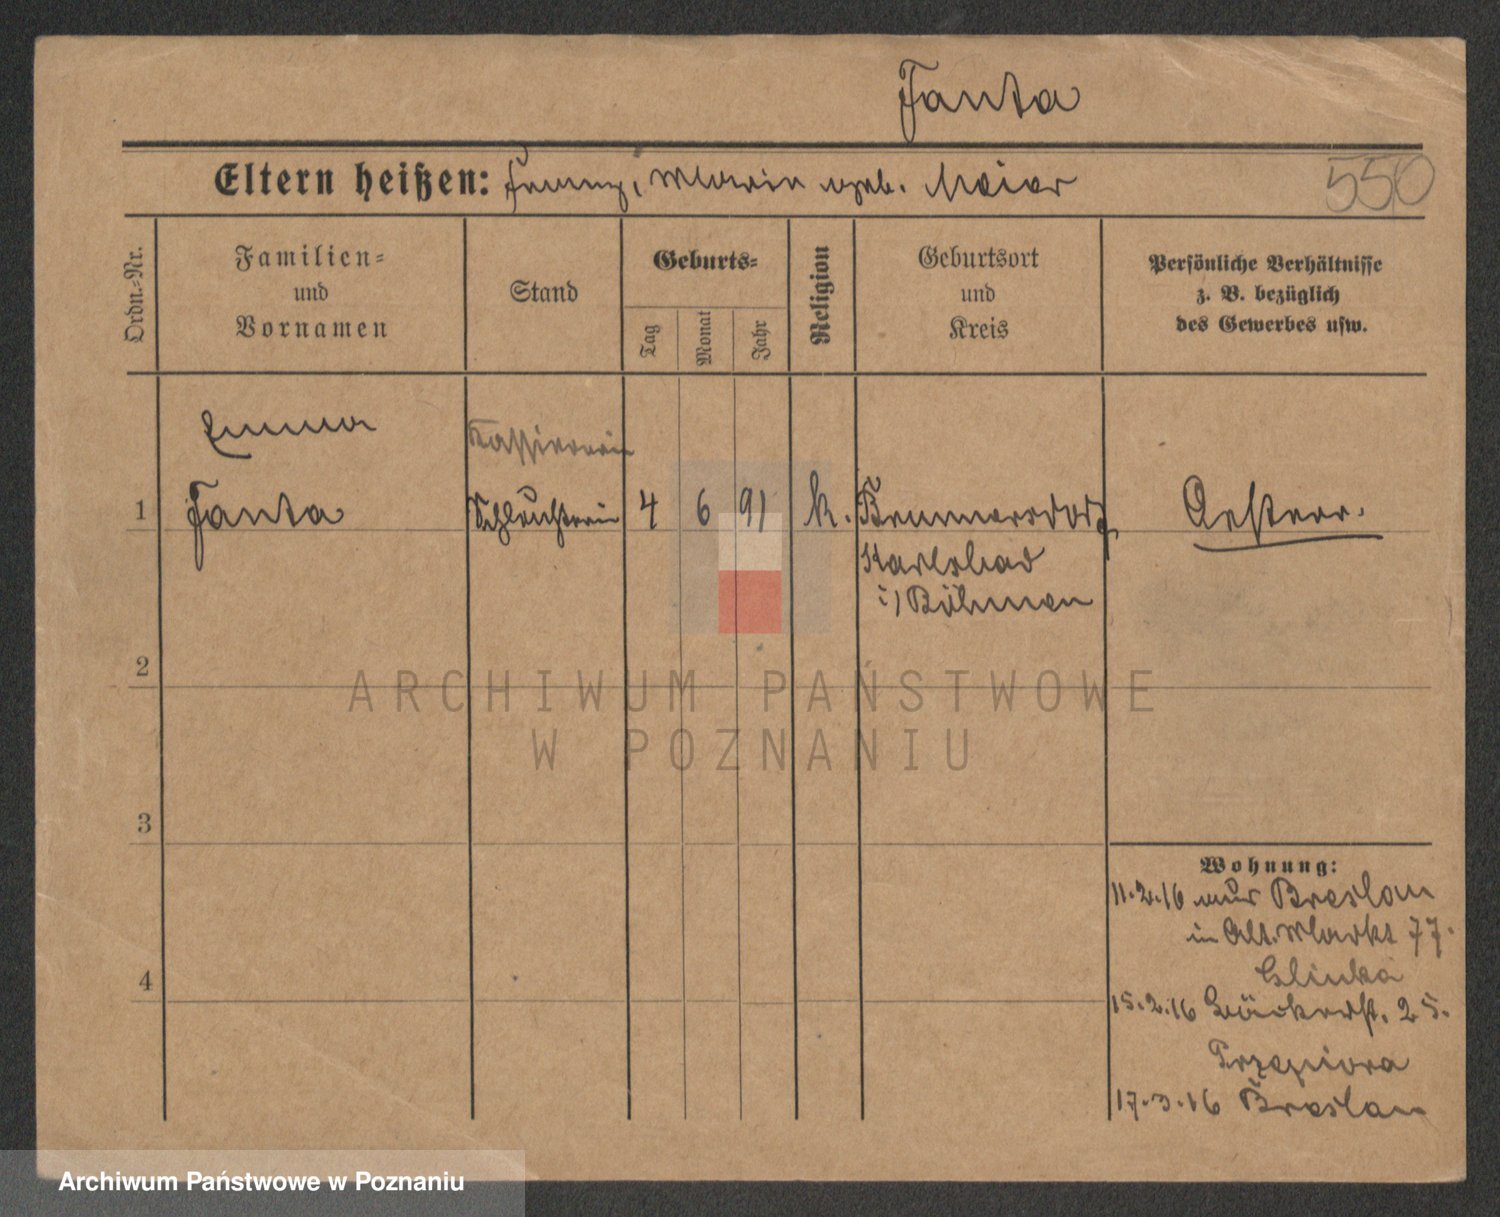 Fanta
Eltern heißen: Franz, Marie geb. Maier
550
Ordn.-Nr.
Familien-
und
Vornamen
Stand
Geburts-
Tag
Monat
Jahr
Religion
Geburtsort
und
Kreis
Persönliche Verhältnisse
z. B. bezüglich
des Gewerbes usw.
Emma
Kassiererin
1 Fanta 4 6 91 k. Oesterr.
Karlsbad
i/ Böhmen
2
3
4
Wohnung:
11.2.16 aus Breslau
in Alt. Markt 77.
Glinka
15.2.16 Bäckerst. 25.
Przepiora
17.3.16 Breslau
ARCHIWUM PAŃSTWOWE
W POZNANIU
Archiwum Państwowe w Poznaniu